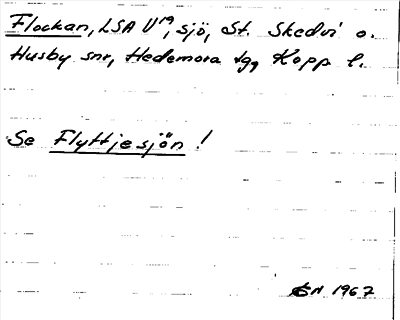 Flockan, LSA U19, sjö, St. Skedvi o.
Husby snr, Hedemora tg, Kopp l.
Se Flyttjesjön!
1967